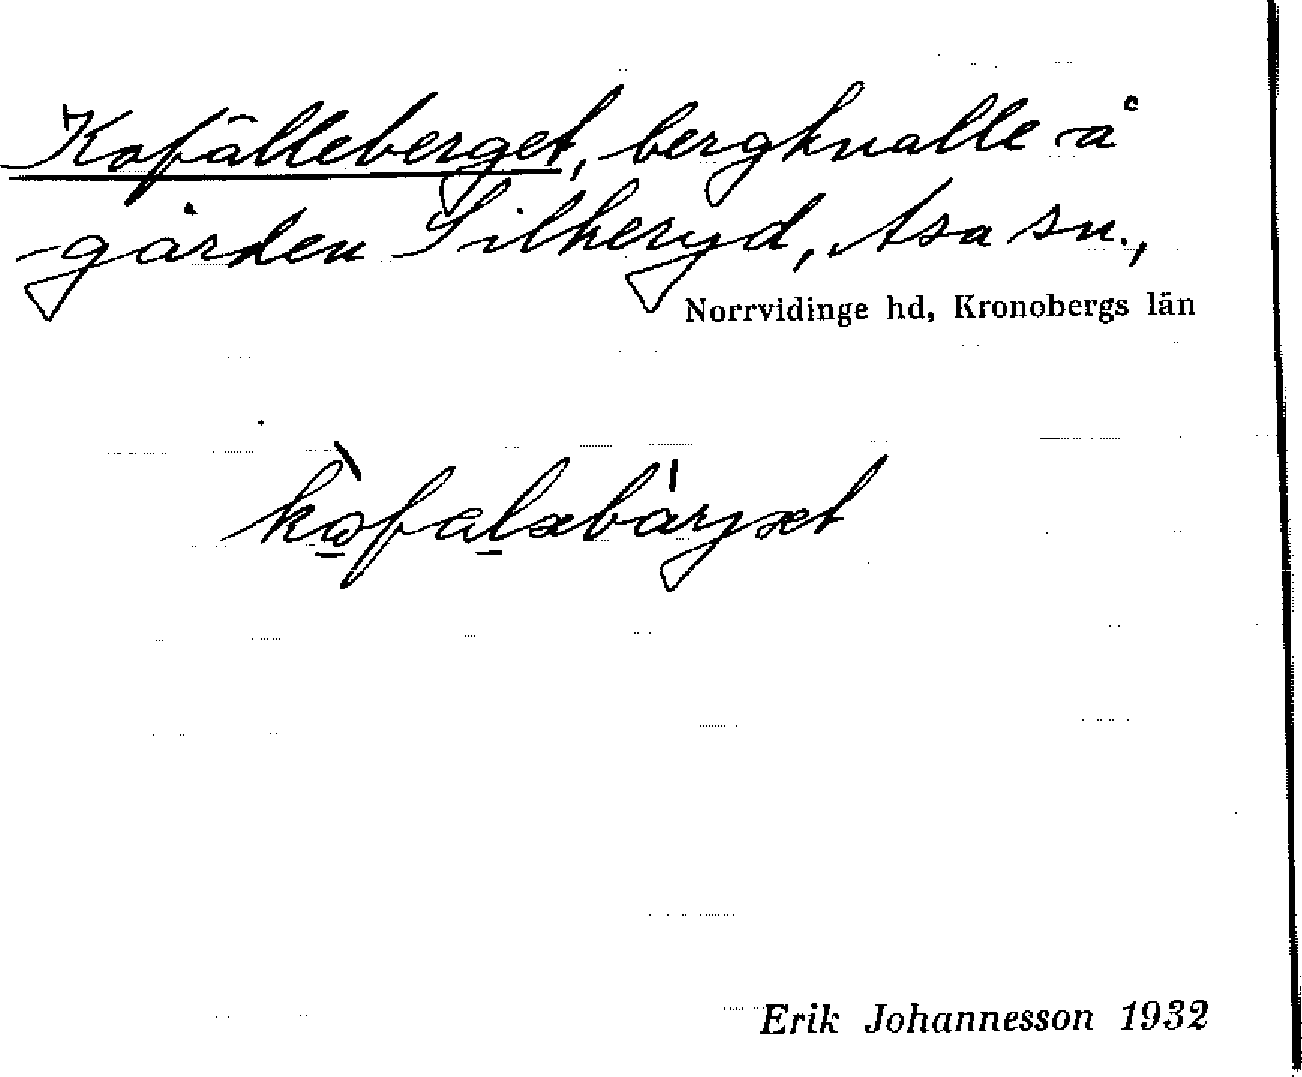 Kofälleberget, bergknalle å
gården Silkeryd, Asa sn.,
Norrvidinge hd, Kronobergs län
Erik Johannesson 1932